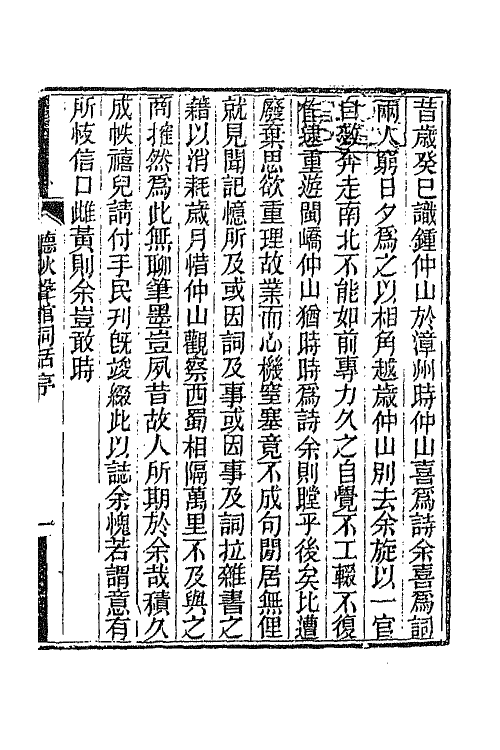 昔歲癸巳識鍾仲山於漳州時仲山喜爲詩余喜爲詞
兩人窮日夕爲之以相角越歲仲山別去余旋以一官
自效奔走南北不能如前專力久之自覺不工輟不復
作逮重遊閩嶠仲山猶時時爲詩余則瞠乎後矣比遭
廢棄思欲重理故業而心機窒塞竟不成句閒居無俚
就見聞記憶所及或因詞及事或因事及詞拉雜書之
藉以消耗歲月惜仲山觀察西蜀相隔萬里不及與之
商搉然爲此無聊筆墨豈夙昔故人所期於余哉積久
成帙禧兒請付手民刊旣竣綴此以誌余愧若謂意有
所枝信口雌黃則余豈敢時
聽秋聲館詞話序
一